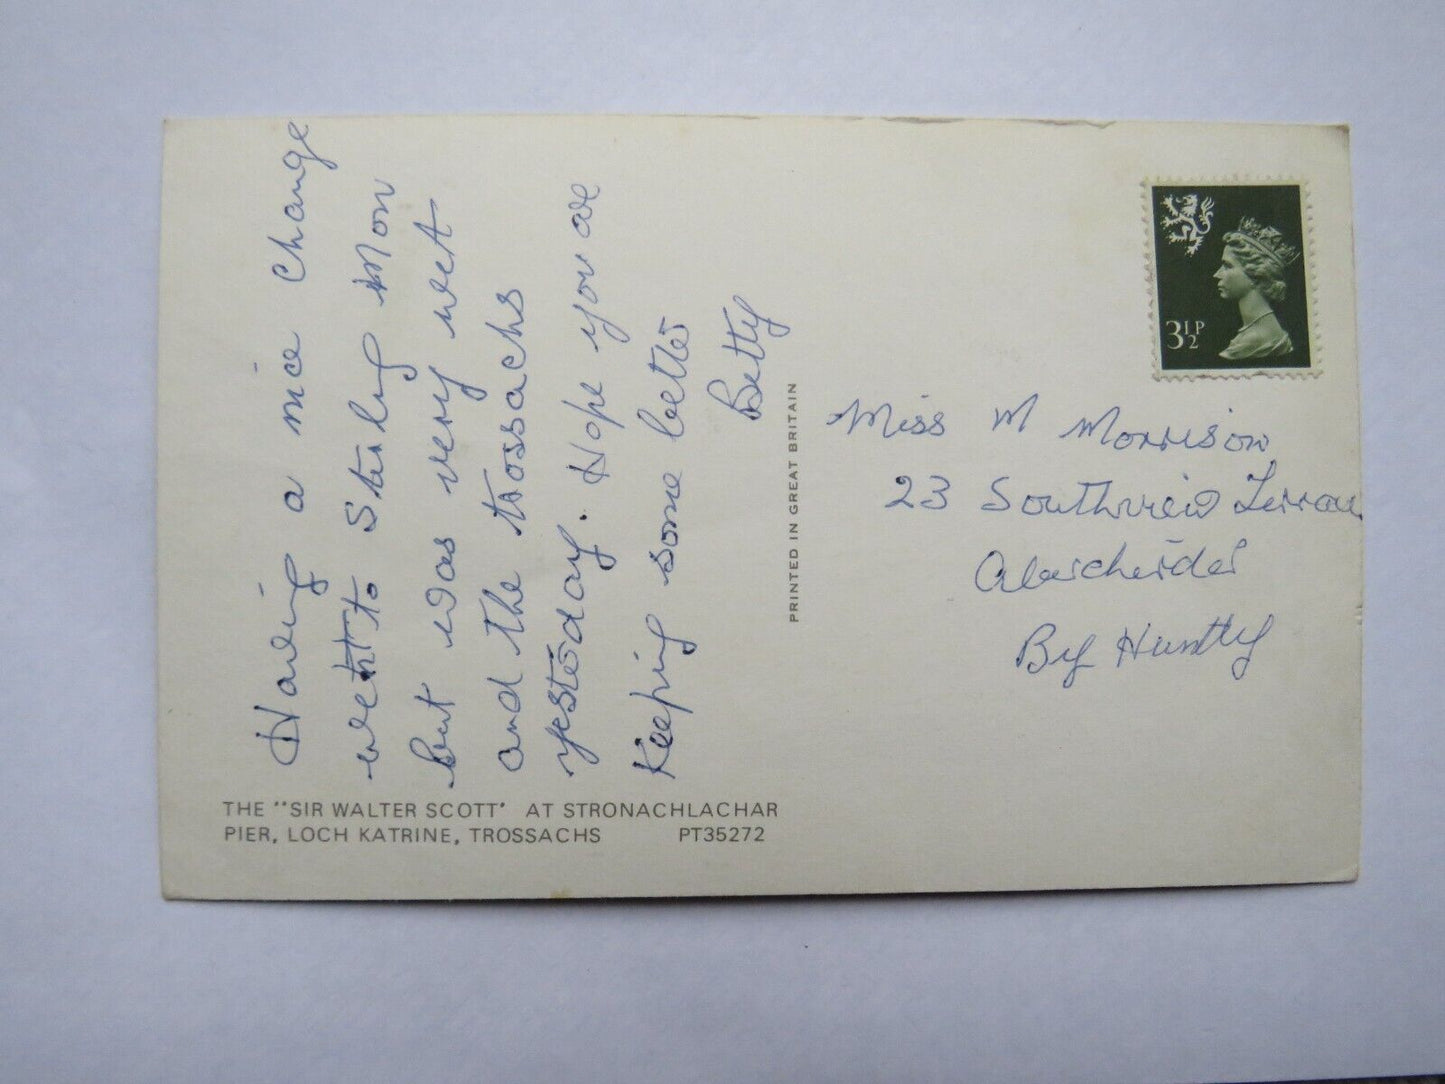 Having a nice change
went to Stirling Mon
but was very wet
and the trossachs
yesterday. Hope you are
Keeping some better
Betty
THE "SIR WALTER SCOTT' AT STRONACHLACHAR
PIER, LOCH KATRINE, TROSSACHS PT35272
PRINTED IN GREAT BRITAIN
3½P
Miss M Morrison
23 Southview Terrace
Aberchirder
By Huntly